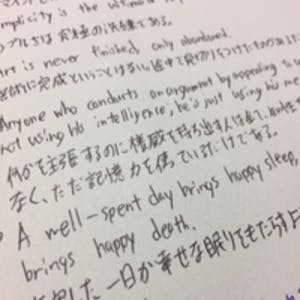 mplicity is the ultimate
プルさは究極の洗練である。
Art is never finished, only abandoned.
芸術に完成ということはない。途中で見切りをつけたものがあるだ
Anyone who conducts an argument by appealing to
not using his intelligence; he's just using his me
何かを主張するのに権威を持ち出す人は全て、知性
なく、ただ記憶力を使っているだけである。
A well-spent day brings happy sleep,
brings happy death.
した一日が幸せな眠りをもたらすよ